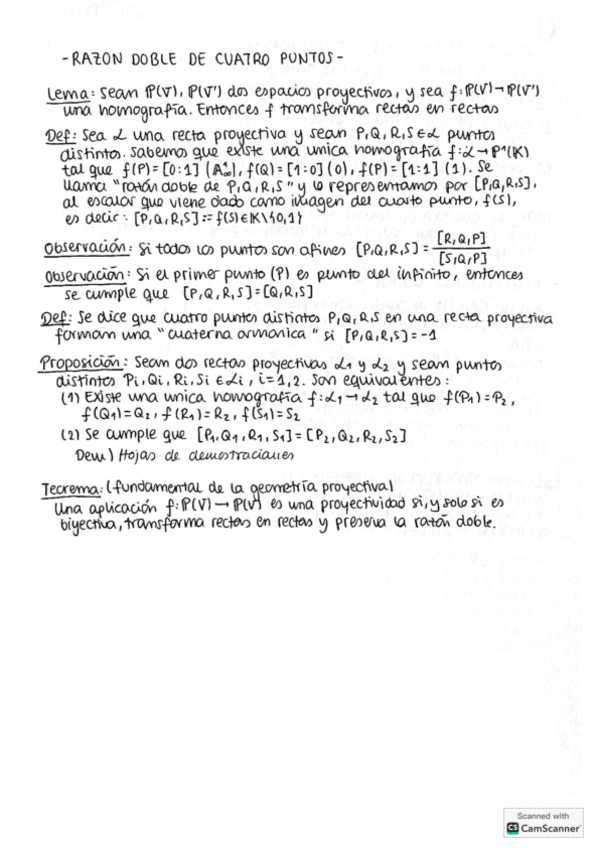 -RAZON DOBLE DE CUATRO PUNTOS-
Lema: Sean ℙ(V), ℙ(V') dos espacios proyectivos, y sea f: ℙ(V)→ℙ(V')
una homografía. Entonces f transforma rectas en rectas
Def: Sea L una recta proyectiva y sean P,Q,R,S∈L puntos
distintos. Sabemos que existe una unica homografía f:L→ℙ¹(K)
tal que f(P)=[0:1] (A∞), f(Q)=[1:0] (0), f(P)=[1:1] (1). Se
llama "razón doble de P,Q,R,S" y lo representamos por [P,Q,R,S],
al escalar que viene dado como imagen del cuarto punto, f(S),
es decir: [P,Q,R,S]:=f(S)∈K\{0,1}
Observación: Si todos los puntos son afines [P,Q,R,S]=[R,Q,P]/[S,Q,P]
Observación: Si el primer punto (P) es punto del infinito, entonces
se cumple que [P,Q,R,S]=[Q,R,S]
Def: Se dice que cuatro puntos distintos P,Q,R,S en una recta proyectiva
forman una "cuaterna armonica" si [P,Q,R,S]=-1
Proposición: Sean dos rectas proyectivas L1 y L2 y sean puntos
distintos Pi, Qi, Ri, Si ∈Li, i=1,2. Son equivalentes:
(1) Existe una unica homografía f:L1→L2 tal que f(P1)=P2,
f(Q1)=Q2, f(R1)=R2, f(S1)=S2
(2) Se cumple que [P1,Q1,R1,S1]=[P2,Q2,R2,S2]
Dem) Hojas de demostraciones
Teorema: (fundamental de la geometría proyectiva)
Una aplicación f:ℙ(V)→ℙ(V) es una proyectividad si, y solo si es
biyectiva, transforma rectas en rectas y preserva la razón doble.
Scanned with
CS CamScanner